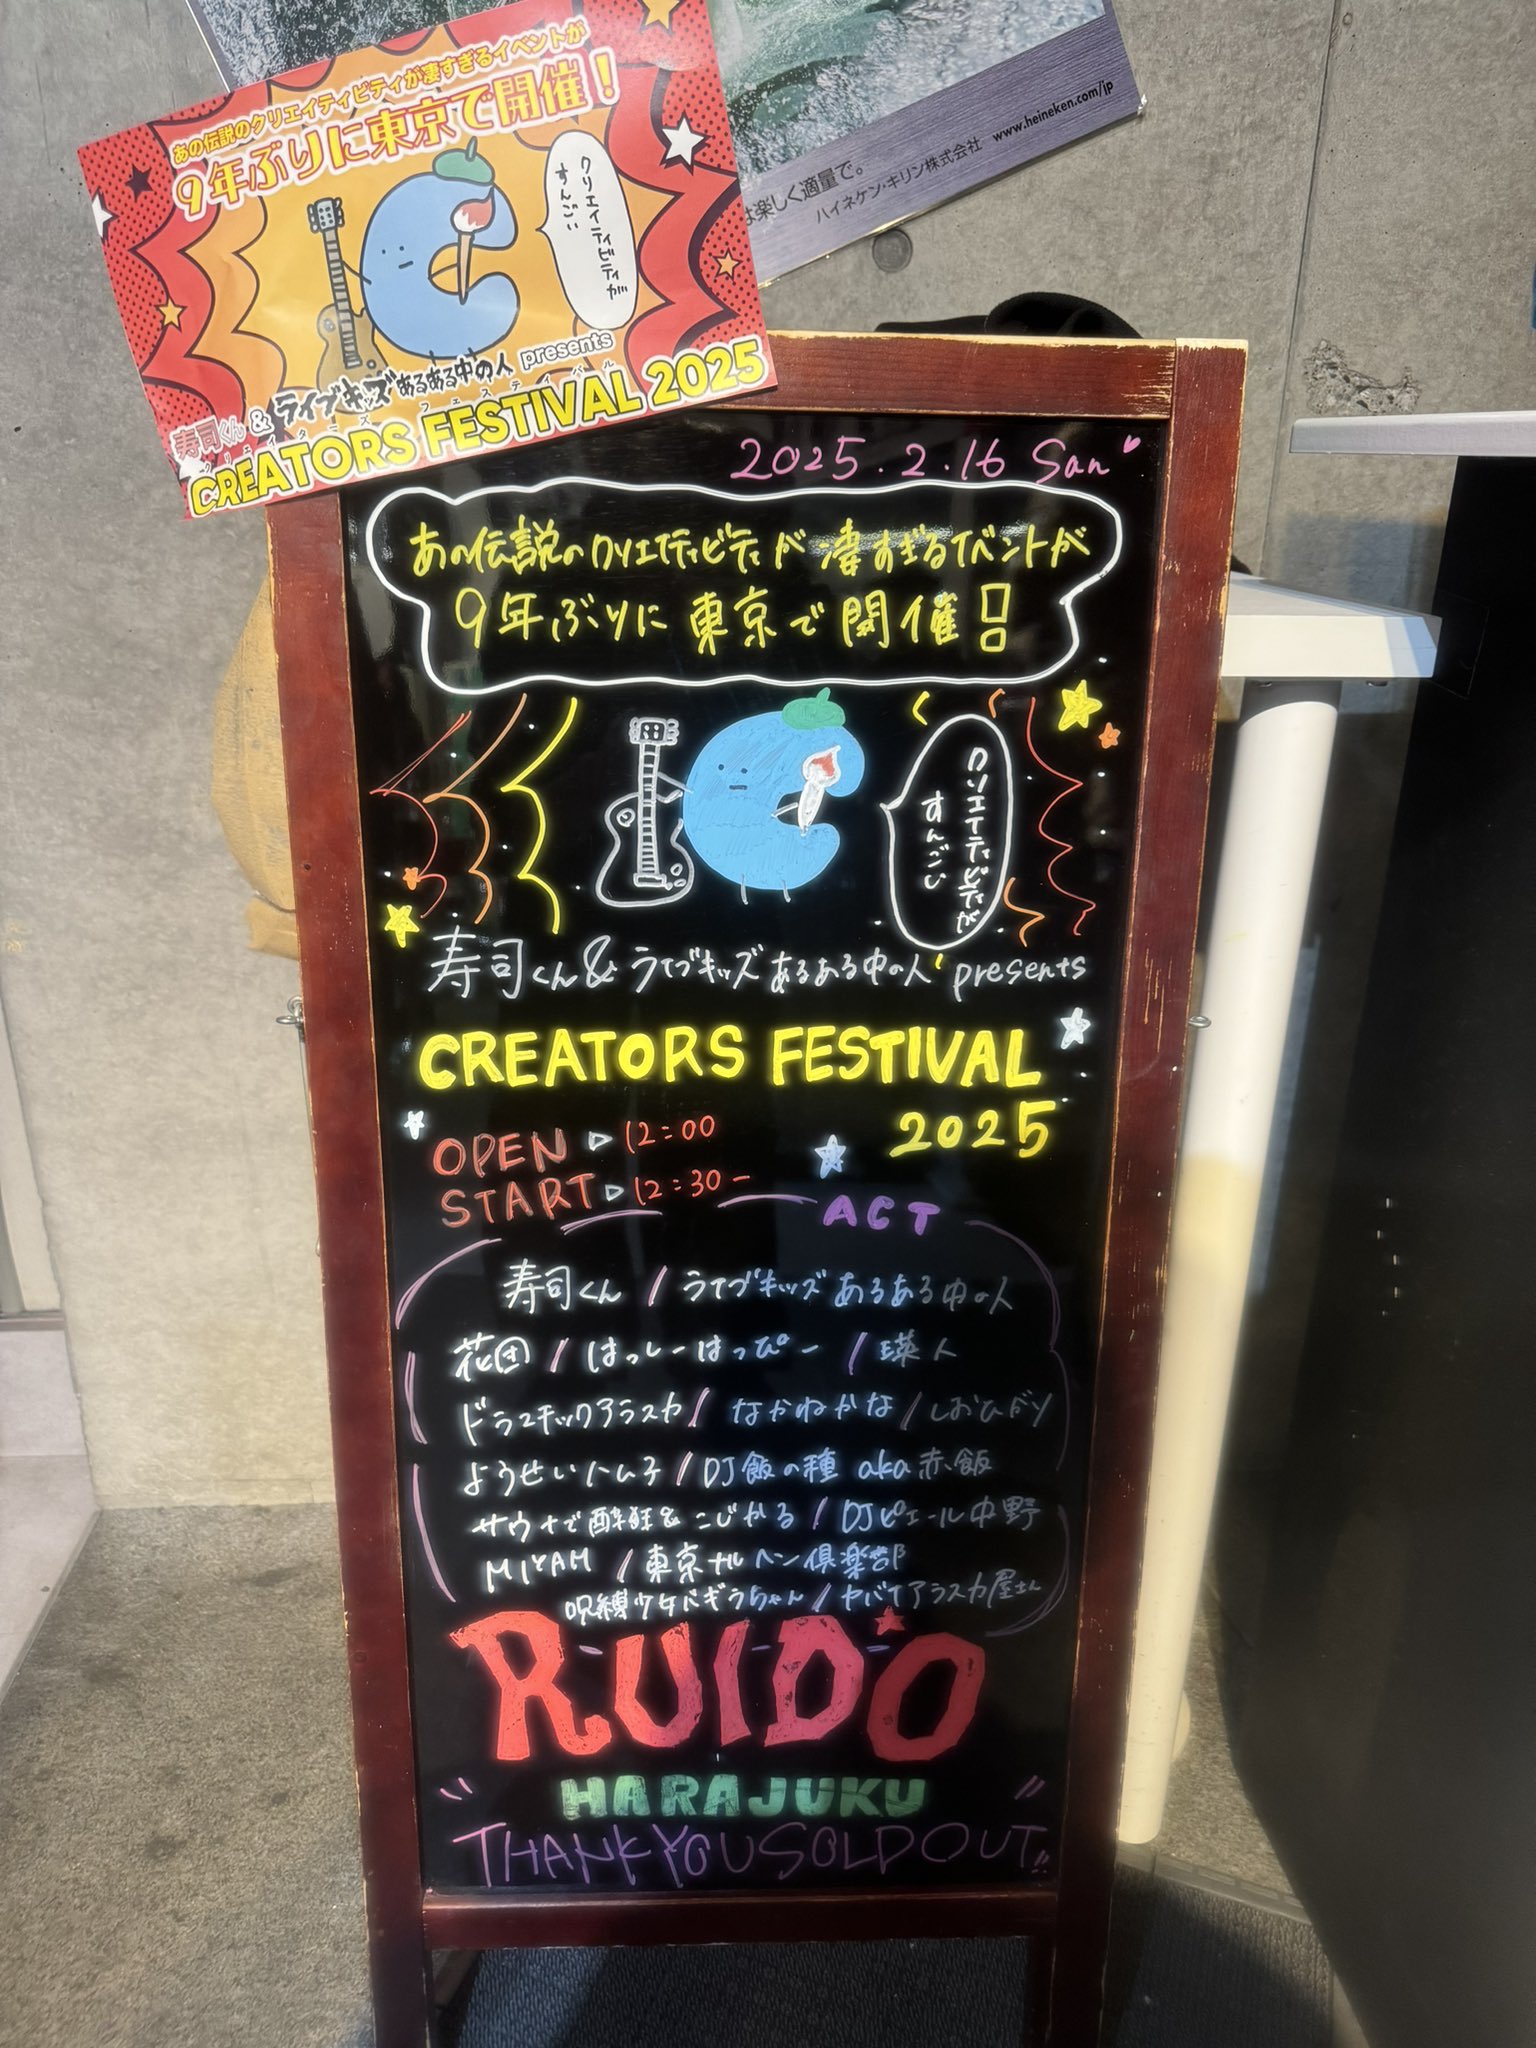 あの伝説のクリエイティビティが凄すぎるイベントが
9年ぶりに東京で開催！
クリエイティビティが
すんごい
寿司くん & ライブキッズあるある中の人 presents
クリエイターズフェスティバル
CREATORS FESTIVAL 2025
は楽しく適量で。
ハイネケン・キリン株式会社 www.heineken.com/jp
2025.2.16 Sun
あの伝説のクリエイティビティが凄すぎるイベントが
9年ぶりに東京で開催!!
クリエイティビティが
すんごい
寿司くん&ライブキッズあるある中の人 presents
CREATORS FESTIVAL
2025
OPEN ▷ 12:00
START ▷ 12:30-
ACT
寿司くん / ライブキッズあるある中の人
花団 / はっしーはっぴー / 瑛人
ドラマチックアラスカ / なかねかな / しおひがり
ようせいハム子 / DJ飯の種 aka 赤飯
サウナで酩酊&こじかる / DJピエール中野
MIYAM / 東京ナルヘン倶楽部
呪縛ウケバギラちゃん / ヤバイアラスカ屋さん
RUIDO
HARAJUKU
"THANK YOU SOLD OUT!!"